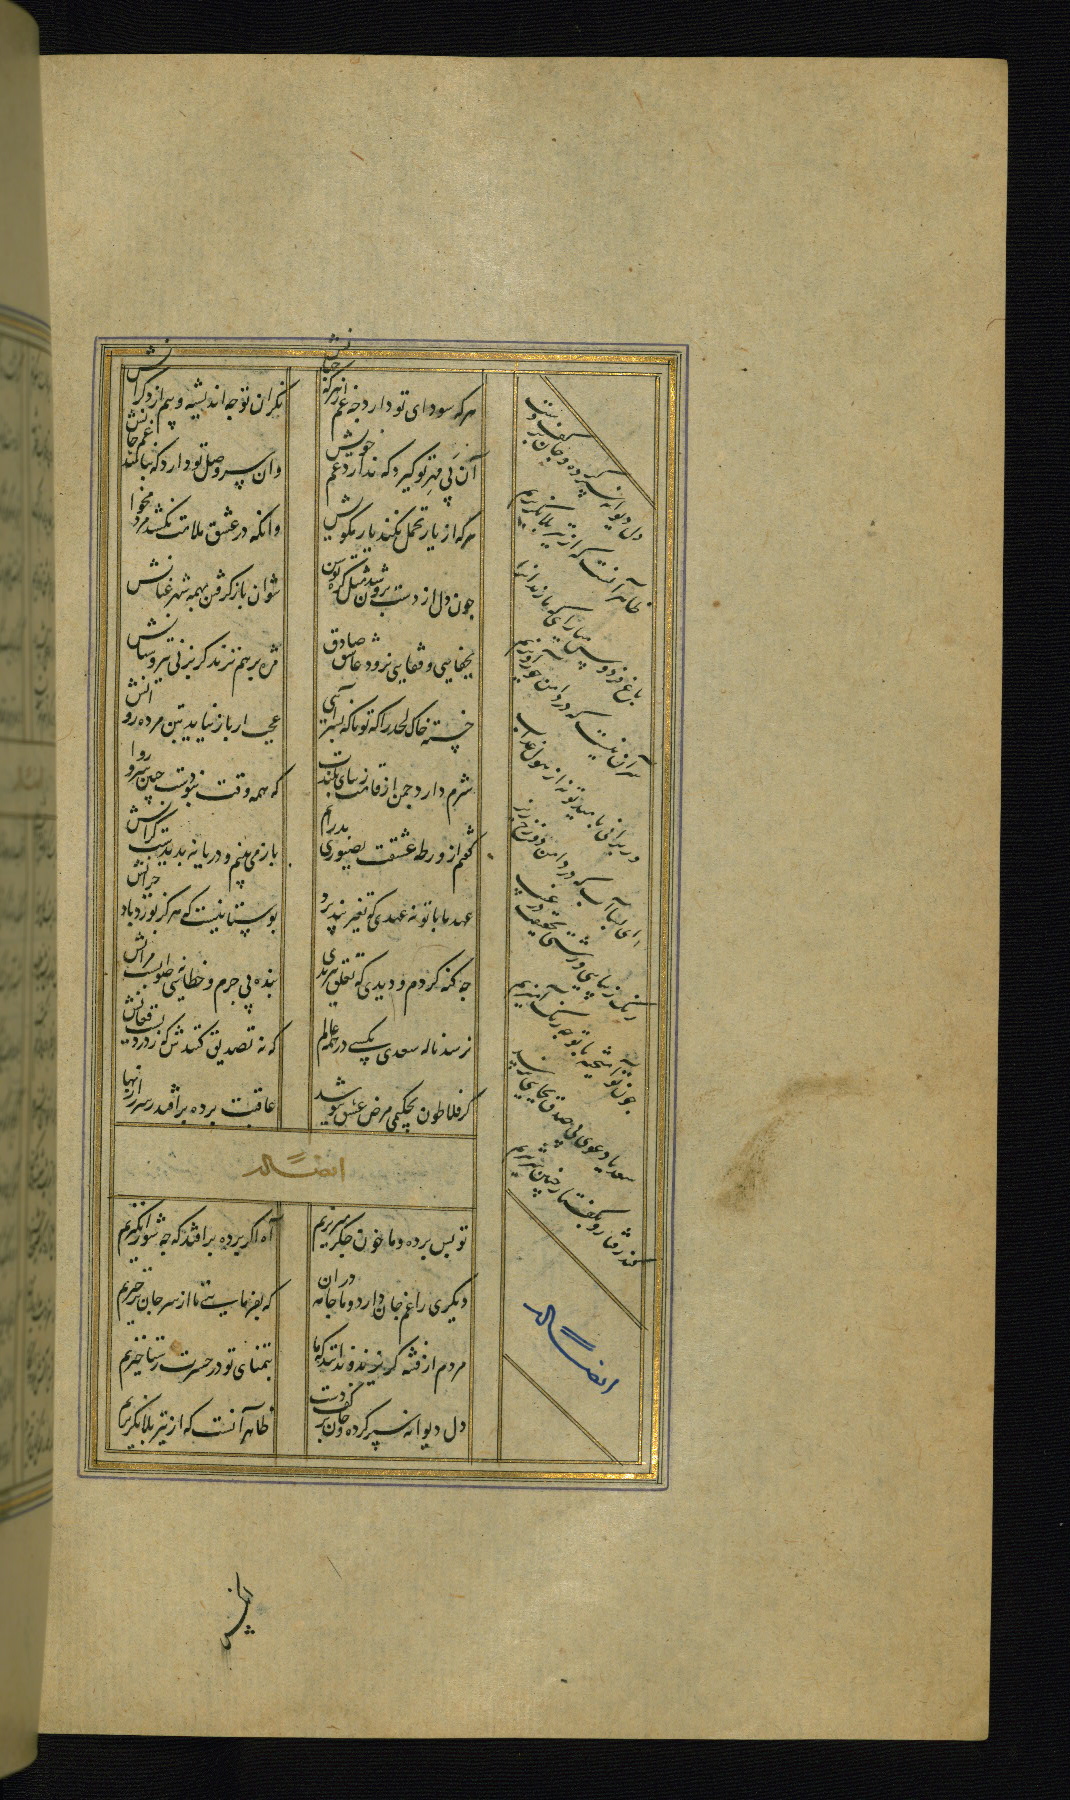 هرکه سودای تو دارد چه غم از هرکه جهانش
نکران تو چه اندیشه و بیم از دکرانش
آن پی مهر تو کیرد که ندارد غم خویش
وان سر وصل تو دارد که ندارد غم جانش
هرکه از یار تحمل نکند یار مکویش
وانکه در عشق ملامت نکشد مرد مخوانش
چون دل از دست بدر شد مثل کره توسن
نتوان باز کرفتن بهمه شهر عنانش
بجفایی و قفایی نرود عاشق صادق
مژه بر هم نزند کر بزنی تیر و سنانش
خفته خاک لحد را که تو ناکه بسر آیی
عجب ار باز نیاید بتن مرده روانش
شرم دارد چمن از قامت زیبای بلندت
که همه وقت نبودست چنین سرو روانش
کفتم از ورطه عشقت بصبوری بدر آیم
باز می بینم و دریا نه پدیدست کرانش
عهد ما با تو نه عهدی که تغیر بپذیرد
بوستانیست که هرکز نوزد باد خزانش
چه کنه کردم و دیدی که تعلق ببریدی
بنده بی جرم و خطایی نه صوابست مرانش
نرسد ناله سعدی بکسی در همه عالم
که نه تصدیق کند کز سر دردیست فغانش
کر فلاطون بحکیمی مرض عشق بپوشد
عاقبت پرده برافتد ز سر راز نهانش
ایضا له
تو پس پرده و ما خون جکر میریزیم
آه اکر پرده برافتد که چه شور انکیزیم
دیکری را غم جان دارد و ما جامه دران
که بفرمایی تا از سر جان برخیزیم
مردم از فتنه کریزند و ندانند که ما
بتمنای تو در حسرت رستاخیزیم
دل دیوانه سپر کرده و جان بر کف دست
ظاهر آنست که از تیر بلا نکریزیم
دل دیوانه سپر کرده و جان بر کف دست
ظاهر آنست که از تیر بلا نکریزیم
باغ فردوس میارای که ما رندانرا
سر آن نیست که در دامن حور آویزیم
ور برانی بامید تو نه از هول عذاب
ای بسا آب که در دامن دوزخ ریزیم
رنک زیبایی و زشتی بحقیقت در غیب
چون تو آمیخته با تو چه رنک آمیزیم
سعدیا دعوی بی صدق بجایی نرسد
کندرفتار و بکفتار چنین تیزیم
ایضا له